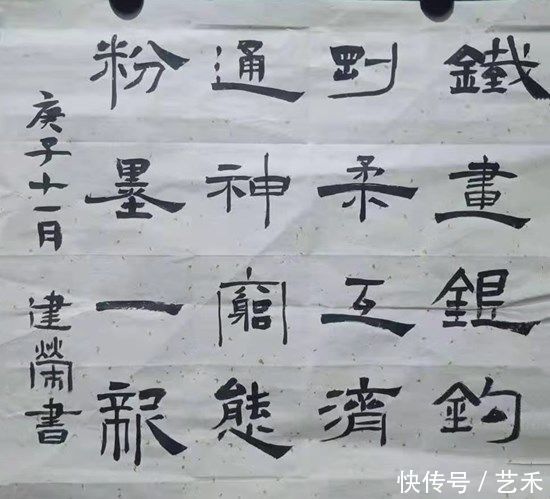 鐵畫銀鈎
剛柔互濟
通神窮態
粉墨一新
庚子十一月 建榮書
快传号／艺禾